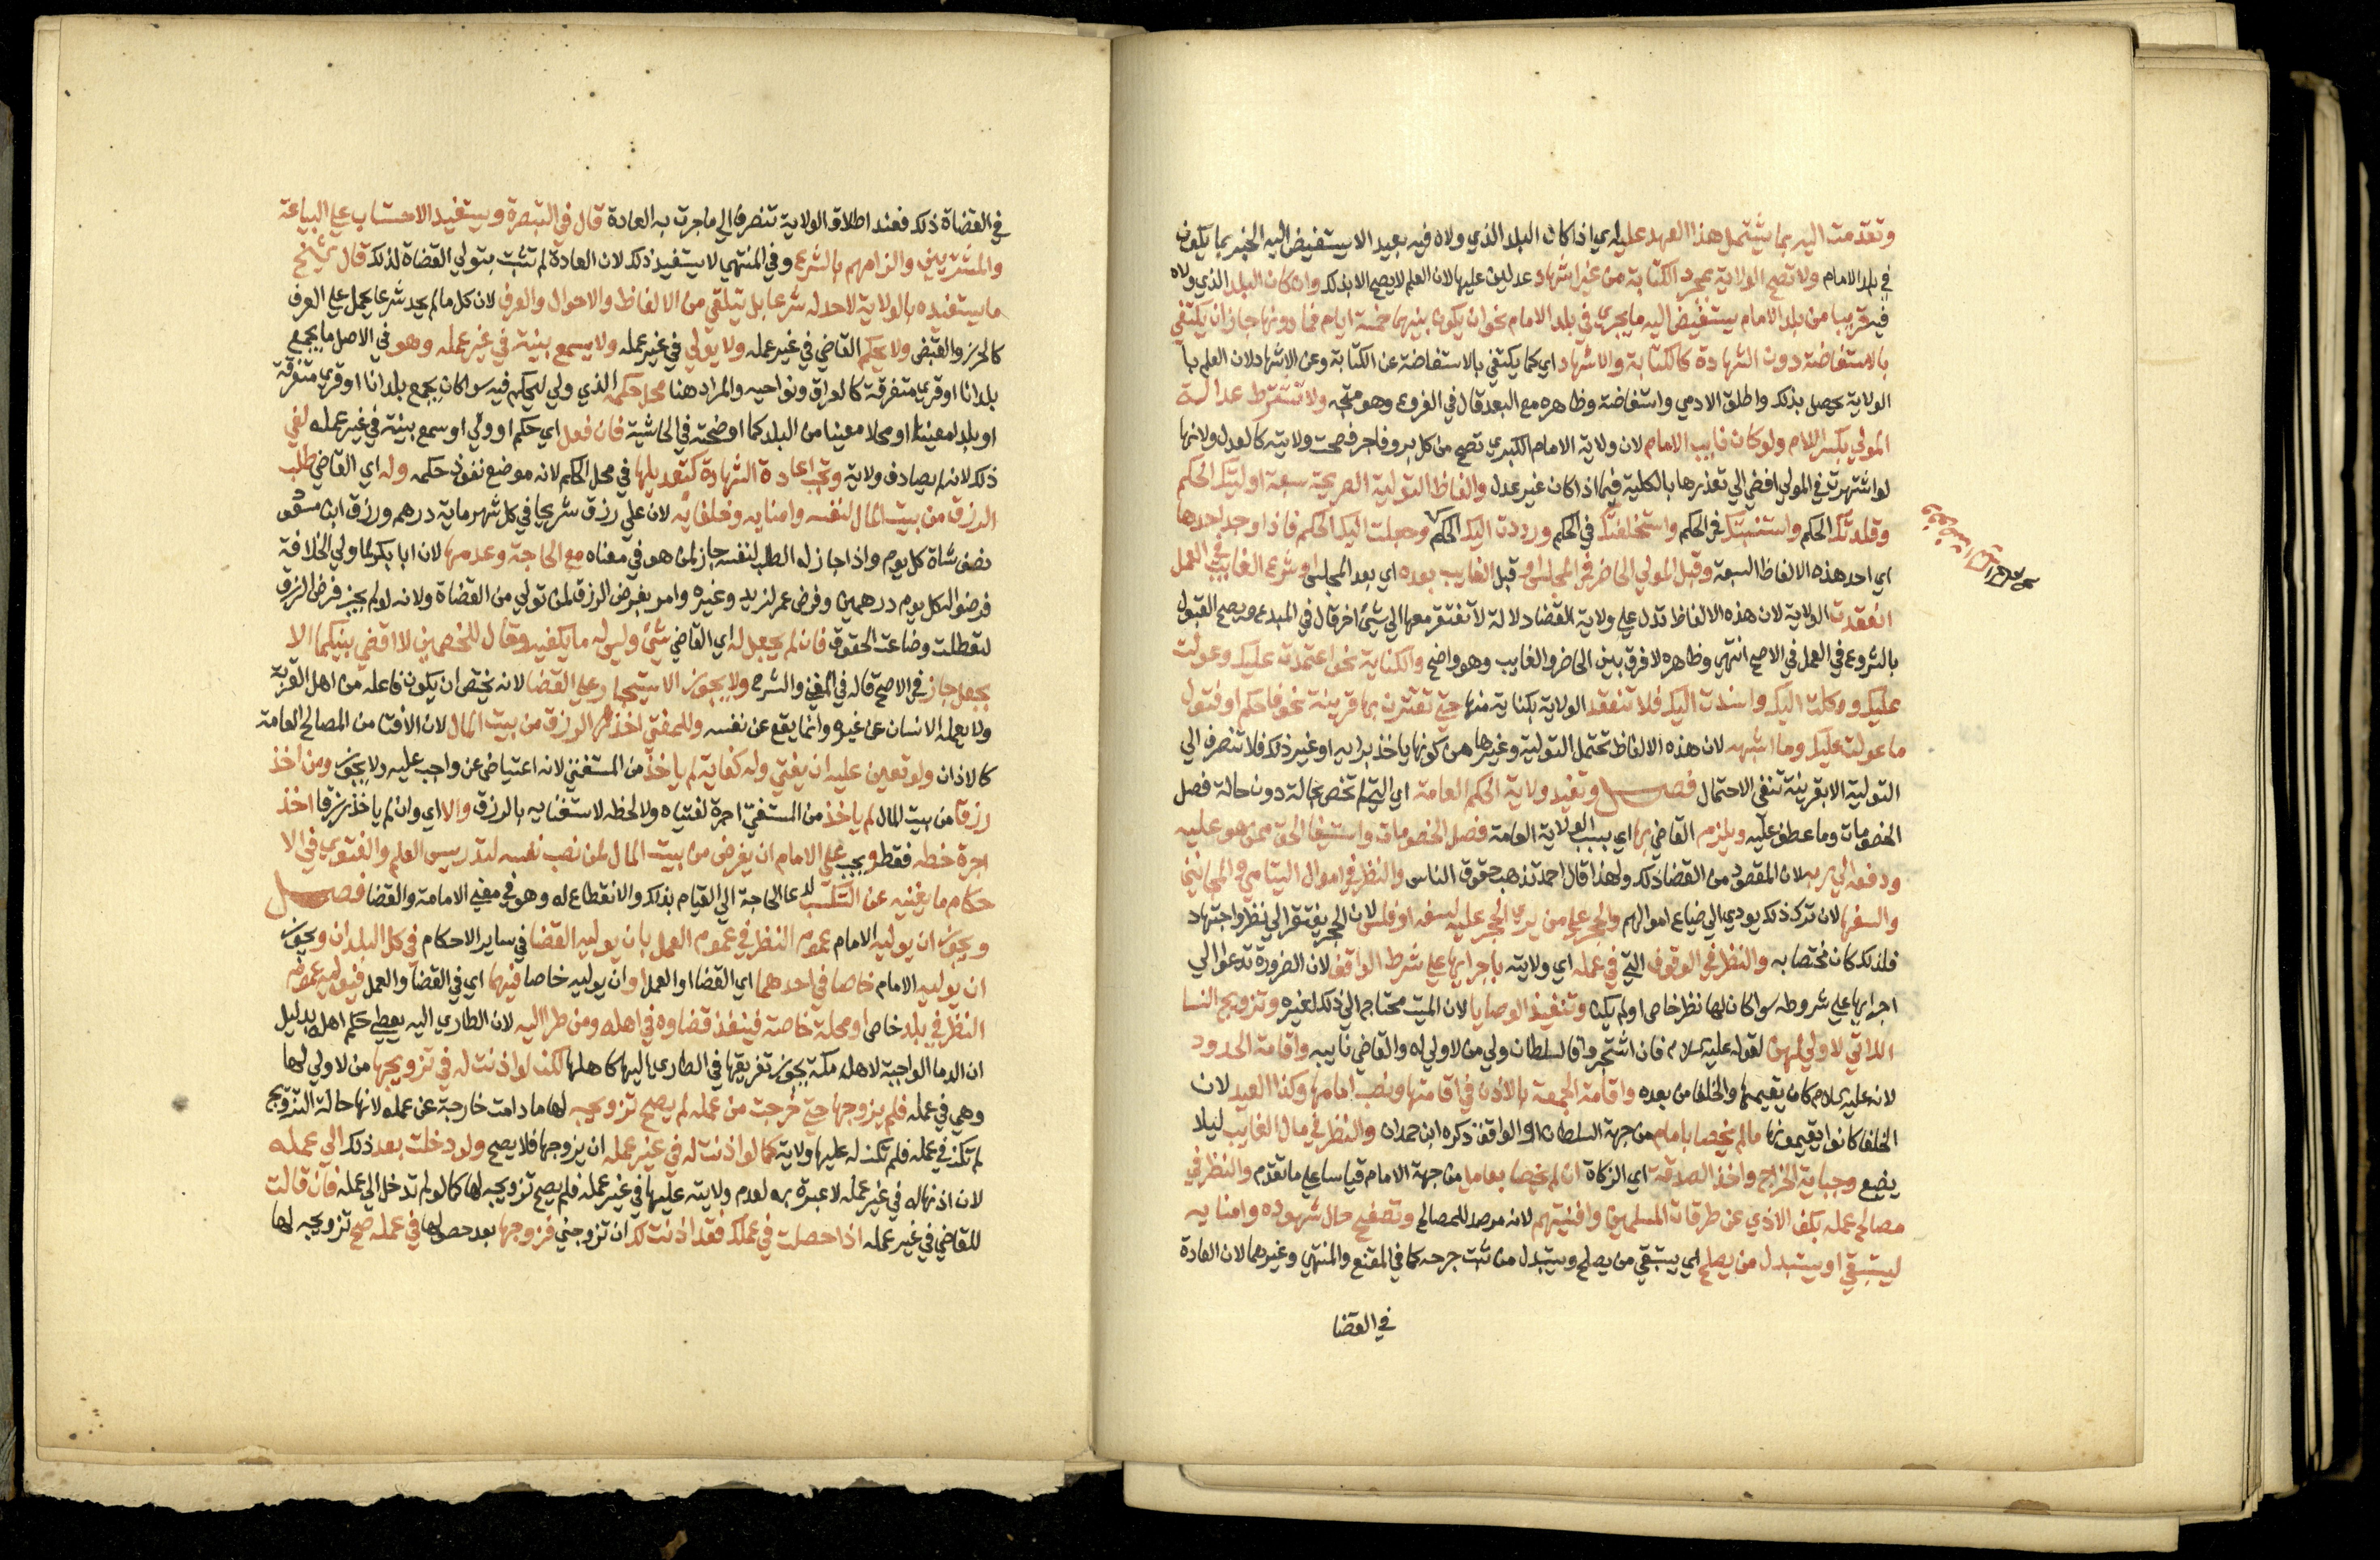 وتقدمت اليه بما يشتمل هذا العهد عليه اي اذا كان البلد الذي ولاه فيه بعيد الا يستفيض اليه الخبر بما يكون
في بلد الامام ولا تصح الولاية بمجرد الكتابة من غير اشهاد عدلين عليها لان العلم لا يصح الا بذلك وان كان البلد الذي ولاه
فيه قريبا من بلد الامام يستفيض اليه ما يجري في بلد الامام نحو ان يكون بينهما خمسة ايام فما دونها جاز ان يكتفي
بالاستفاضة دون الشهادة كالكتابة والاشهاد اي كما يكتفي بالاستفاضة عن الكتابة وعن الاشهاد لان العلم بها
الولاية يحصل بذلك واطلق الادمي واستفاضة وظاهره مع البعد قال في الفروع وهو متجه ولا تشترط عدالة
المولي بكسر اللام ولو كان نايب الامام لان ولاية الامام الكبري تصح من كل بر وفاجر فصحت ولايته كالعدل ولانها
لو اشتهرت في المولي افضي الي تعذرها بالكلية فيما اذا كان غير عدل والفاظ التولية الصريحة سبعة اوليتك الحكم
وقلدتك الحكم واستنبتك في الحكم واستخلفتك في الحكم ورددت اليك الحكم وجعلت اليك الحكم فاذا وجد احدها
اي احد هذه الالفاظ السبعة وقبل المولي الحاضر في المجلس او قبل الغايب بعده اي بعد المجلس او شرع الغايب في العمل
انعقدت الولاية لان هذه الالفاظ تدل علي ولاية القضا دلالة لا تفتقر معها الي شيئ اخر قال في المبدع ويصح القبول
بالشروع في العمل في الاصح انتهي وظاهره لا فرق بين الحاضر والغايب وهو واضح والكناية نحو اعتمدت عليك وعولت
عليك ووكلت اليك واسندت اليك فلا تنعقد الولاية بكناية منها حتي تقترن بها قرينة نحو فاحكم او فتول
ما عولت عليك وما اشبهه لان هذه الالفاظ تحتمل التولية وغيرها من كونها ياخذ برايه او غير ذلك فلا تنصرف الي
التولية الا بقرينة تنفي الاحتمال فصل وتفيد ولاية الحكم العامة اي التي لم تختص بحالة دون حالة فصل
الخصومات وما عطف عليه ويلزم القاضي بها اي بسبب الولاية العامة فصل الخصومات واستيفا الحق ممن هو عليه
ودفعه الي ربه لان المقصود من القضا ذلك ولهذا قال احمد تذهب حقوق الناس والنظر في اموال اليتامي والمجانين
والسفها لان ترك ذلك يودي الي ضياع اموالهم والحجر علي من يري الحجر عليه لسفه او فلس لان الحجر يفتقر الي نظر واجتهاد
فلذلك كان مختصا به والنظر في الوقوف التي في عمله اي ولايته باجرايها علي شرط الواقف لان الضرورة تدعو الي
اجرايها علي شروطه سوا كان لها نظر خاص او لم يكن وتنفيذ الوصايا لان الميت محتاج الي ذلك لغيره وتزويج النسا
اللاتي لا ولي لهن لقوله عليه السلام فان اشتجروا فالسلطان ولي من لا ولي له والقاضي نايبه واقامة الحدود
لانه عليه السلام كان يقيمها والخلفا من بعده واقامة الجمعة بالاذن في اقامتها ونصب امامها وكذا العيد لان
الخلفا كانوا يقيمونها ما لم يخصا بامام من جهة السلطان او الواقف ذكره ابن حمدان والنظر في مال الغايب ليلا
يضيع وجباية الخراج واخذ الصدقة اي الزكاة ان لم يخصا بعامل من جهة الامام قياسا علي ما تقدم والنظر في
مصالح عمله بكف الاذي عن طرقات المسلمين وافنيتهم لانه مرصد للمصالح وتصفح حال شهوده وامنايه
ليستبقي او يستبدل من يصلح اي يستبقي من يصلح ويستبدل من ثبت جرحه كما في المقنع والمنتهي وغيرهما لان العادة
في القضا
في القضاة ذلك فعند اطلاق الولاية تنصرف الي ما جرت به العادة قال في التبصرة ويستفيد الاحتساب علي الباعة
والمشتريين والزامهم بالشرع وفي المنتهي لا يستفيد ذلك لان العادة لم تثبت بتولي القضاة لذلك قال الشيخ
ما يستفيده بالولاية لا حد له شرعا بل يتلقي من الالفاظ والاحوال والعرف لان كل ما لم يحد شرعا يحمل علي العرف
كالحرز والقبض ولا يحكم القاضي في غير عمله ولا يولي في غير عمله ولا يسمع بينة في غير عمله وهو في الاصل ما يجمع
بلدانا او قري متفرقة كالعراق ونواحيه والمراد هنا محل حكمه الذي ولي ليحكم فيه سوا كان يجمع بلدانا او قري متفرقة
او بلدا معينا او محلا معينا من البلد كما اوضحته في الحاشية فان فعل اي حكم او ولي او سمع بينة في غير عمله لغي
ذلك لانه لم يصادف ولاية وتجب اعادة الشهادة كتعديلها في محل الحكم لانه موضع نفوذ حكمه وله اي القاضي طلب
الرزق من بيت المال لنفسه وامنايه وخلفايه لان علي رزق شريحا في كل شهر ماية درهم ورزق ابن مسعود
نصف شاة كل يوم واذا جاز له الطلب لنفسه جاز لمن هو في معناه مع الحاجة وعدمها لان ابا بكر لما ولي الخلافة
فرضوا له كل يوم درهمين وفرض عمر لزيد وغيره وامر بفرض الرزق لمن تولي من القضاة ولانه لو لم يجز فرض الرزق
لتعطلت وضاعت الحقوق فان لم يجعل له اي القاضي شيئ وليس له ما يكفيه وقال للخصمين لا اقضي بينكما الا
بجعل جاز في الاصح قاله في المغني والشرح ولا يجوز الاستيجار علي القضا لانه يختص ان يكون فاعله من اهل القربة
ولا يعمله الانسان عن غيره وانما يقع عن نفسه وللمفتي اخذ الرزق من بيت المال لان الافتا من المصالح العامة
كالاذان ولو تعين عليه ان يفتي وله كفاية لم ياخذ من المستفتي لانه اعتياض عن واجب عليه ولا يجوز ومن اخذ
رزقا من بيت المال لم ياخذ من المستفتي اجرة لفتياه ولا لخطه لاستغنايه بالرزق والا اي وان لم ياخذ رزقا اخذ
اجرة خطه فقط ويجب علي الامام ان يفرض من بيت المال لمن نصب نفسه لتدريس العلم والفتوي في الا
حكام ما يغنيه عن التكسب لدعا الحاجة الي القيام بذلك والانقطاع له وهو في معني الامامة والقضا فصل
ويجوز ان يوليه الامام عموم النظر في عموم العمل بان يوليه القضا في ساير الاحكام في كل البلدان ويجوز
ان يوليه الامام خاصا في احدهما اي القضا او العمل وان يوليه خاصا فيهما اي في القضا والعمل فيوليه عموم
النظر في بلد خاص او محلة خاصة فينفذ قضاوه في اهله ومن طرا اليه لان الطاري اليه يعطي حكم اهله بدليل
ان الدما الواجبة لاهل مكة يجوز تفريقها في الطاري اليها كاهلها لكن لو اذنت له في تزويجها من لا ولي لها
وهي في عمله فلم يزوجها حتي خرجت من عمله لم يصح تزويجه لها ما دامت خارجة عن عمله لانها حالة التزويج
لم تكن في عمله فلم تكن له عليها ولاية كما لو اذنت له في غير عمله ان يزوجها فلا يصح ولو دخلت بعد ذلك الي عمله
لان اذنها له في غير عمله لا عبرة به لعدم ولايته عليها في غير عمله فلم يصح تزويجه لها كما لو لم تدخل الي عمله فان قالت
للقاضي في غير عمله اذا حصلت في عملك فقد اذنت لك ان تزوجني فزوجها بعد حصولها في عمله صح تزويجه لها